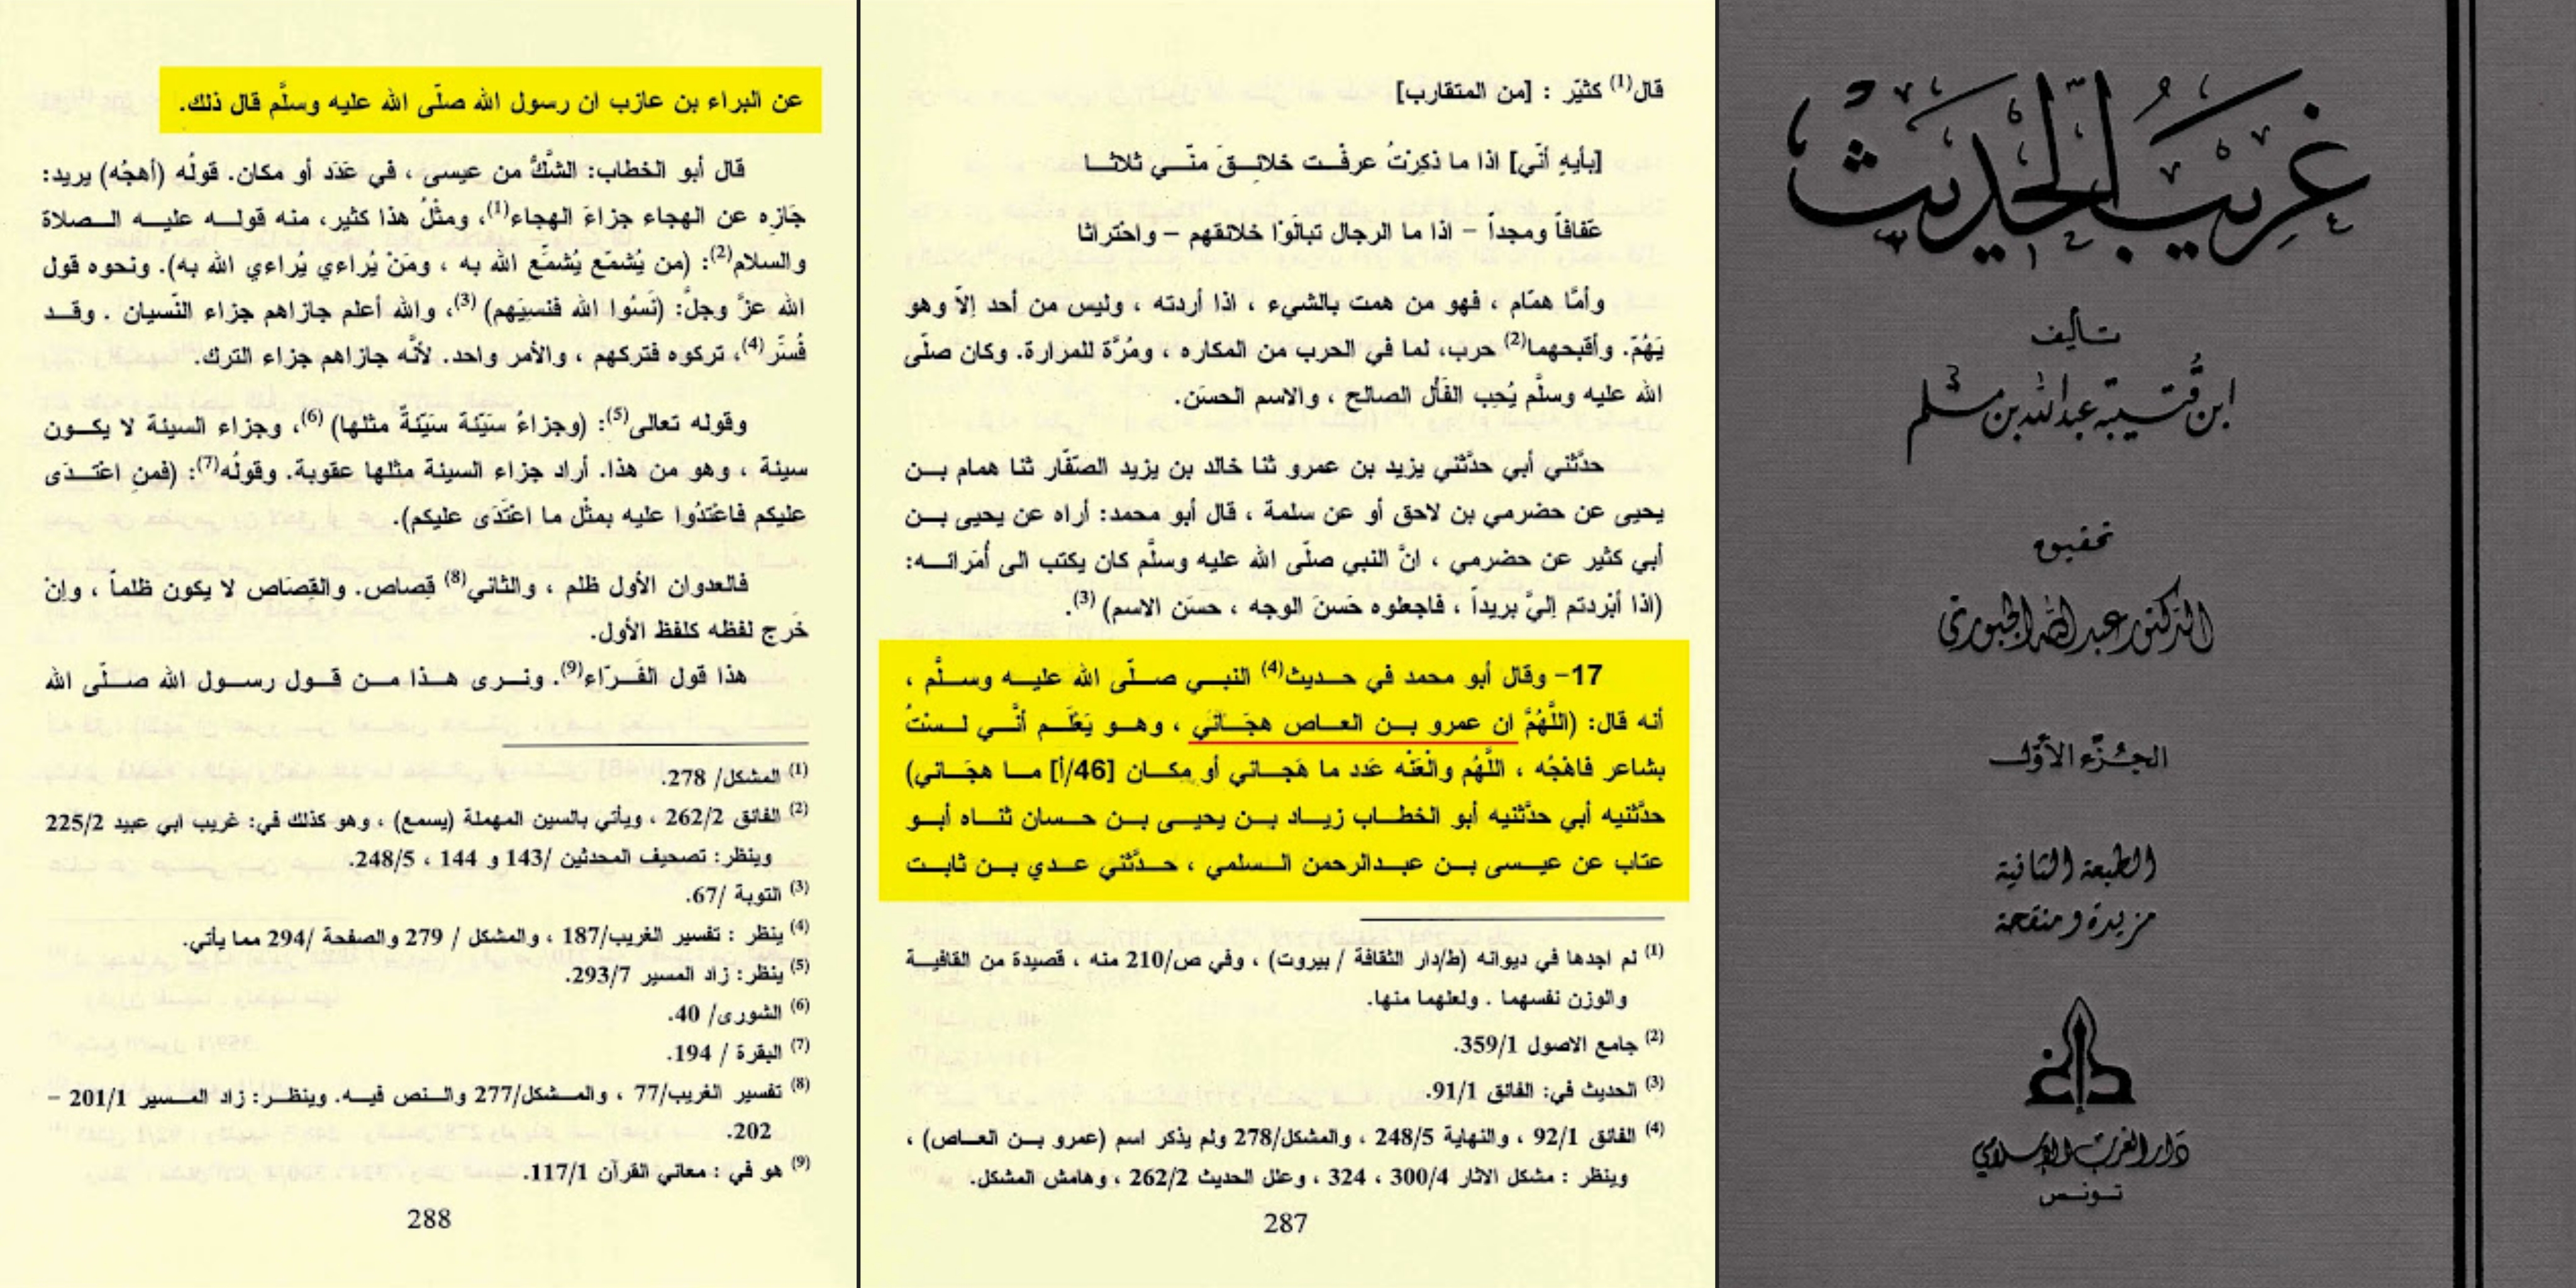 غريب الحديث
تأليف
ابن قتيبة عبد الله بن مسلم
تحقيق
الدكتور عبد الله الجبوري
الجزء الأول
الطبعة الثانية
مزيدة ومنقحة
دار الغرب الإسلامي
تونس
قال(1) كثيّر : [من المتقارب]
[بأيهِ أنّي] اذا ما ذكِرْتُ عرفْت خلائقَ منّي ثلاثا
عَفافاً ومجداً – اذا ما الرجال تبالَوْا خلائقهم – واحْتراثا
وأمَّا همّام ، فهو من همت بالشيء ، اذا أردته ، وليس من أحد إلاّ وهو
يَهُمّ. وأقبحهما(2) حرب، لما في الحرب من المكاره ، ومُرَّة للمرارة. وكان صلّى
الله عليه وسلَّم يُحِب الفَأْل الصالح ، والاسم الحسَن.
حدَّثني أبي حدَّثني يزيد بن عمرو ثنا خالد بن يزيد الصفّار ثنا همام بن
يحيى عن حضرمي بن لاحق أو عن سلمة ، قال أبو محمد: أراه عن يحيى بن
أبي كثير عن حضرمي ، انَّ النبي صلّى الله عليه وسلَّم كان يكتب الى أُمَرائه:
(اذا أبْردتم إليَّ بريداً ، فاجعلوه حَسنَ الوجه ، حسَن الاسم) (3).
17– وقال أبو محمد في حديث(4) النبي صلّى الله عليه وسلَّم ،
أنه قال: (اللَّهُمَّ ان عمرو بن العاص هجَاني ، وهو يَعْلَم أنَّي لستُ
بشاعر فاهْجُه ، اللَّهُم والْعَنْه عَدد ما هَجاني أو مكان [46/أ] ما هجَاني)
حدَّثنيه أبي حدَّثنيه أبو الخطاب زياد بن يحيى بن حسان ثناه أبو
عتاب عن عيسى بن عبدالرحمن السلمي ، حدَّثني عدي بن ثابت
(1) لم اجدها في ديوانه (ط/دار الثقافة / بيروت) ، وفي ص/210 منه ، قصيدة من القافية
والوزن نفسهما . ولعلهما منها.
(2) جامع الاصول 359/1.
(3) الحديث في: الفائق 91/1.
(4) الفائق 92/1 ، والنهاية 248/5 ، والمشكل/278 ولم يذكر اسم (عمرو بن العاص) ،
وينظر : مشكل الاثار 300/4 ، 324 ، وعلل الحديث 262/2 ، وهامش المشكل.
287
عن البراء بن عازب ان رسول الله صلّى الله عليه وسلَّم قال ذلك.
قال أبو الخطاب: الشَّكُّ من عيسى ، في عَدَد أو مكان. قولُه (أهجُه) يريد:
جَازِه عن الهجاء جزاءَ الهجاء(1)، ومثْلُ هذا كثير، منه قوله عليه الصلاة
والسلام(2): (من يُشمّع يُشمّع الله به ، ومَنْ يُراءي يُراءي الله به). ونحوه قول
الله عزَّ وجلَّ: (نَسُوا الله فنسيَهم) (3)، والله أعلم جازاهم جزاء النّسيان . وقد
فُسّر(4)، تركوه فتركهم ، والأمر واحد. لأنَّه جازاهم جزاء الترك.
وقوله تعالى(5): (وجزاءُ سَيّئة سَيّئةٌ مثلها) (6)، وجزاء السيئة لا يكون
سيئة ، وهو من هذا. أراد جزاء السيئة مثلها عقوبة. وقولُه(7): (فمنِ اعْتدَى
عليكم فاعْتَدُوا عليه بمثْل ما اعْتَدَى عليكم).
فالعدوان الأول ظلم ، والثاني(8) قِصاص. والقِصَاص لا يكون ظلماً ، وإنْ
خَرج لفظه كلفظ الأول.
هذا قول الفَرّاء(9). ونرى هذا من قول رسول الله صلّى الله
(1) المشكل/ 278.
(2) الفائق 262/2 ، ويأتي بالسين المهملة (يسمع) ، وهو كذلك في: غريب ابي عبيد 225/2
وينظر: تصحيف المحدثين /143 و 144 ، 248/5.
(3) التوبة /67.
(4) ينظر : تفسير الغريب/187 ، والمشكل / 279 والصفحة /294 مما يأتي.
(5) ينظر: زاد المسير 293/7.
(6) الشورى/ 40.
(7) البقرة / 194.
(8) تفسير الغريب/77 ، والمشكل/277 والنص فيه. وينظر: زاد المسير 201/1 –
202.
(9) هو في : معاني القرآن 117/1.
288